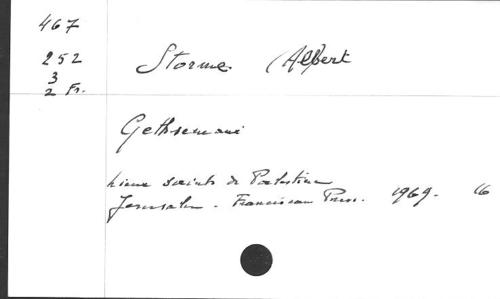 467
252
3
2 Fr.
Storme (Albert
Gethsemani
Lieux saints de Palestine
Jerusalem - Franciscan Press. 1969. 16